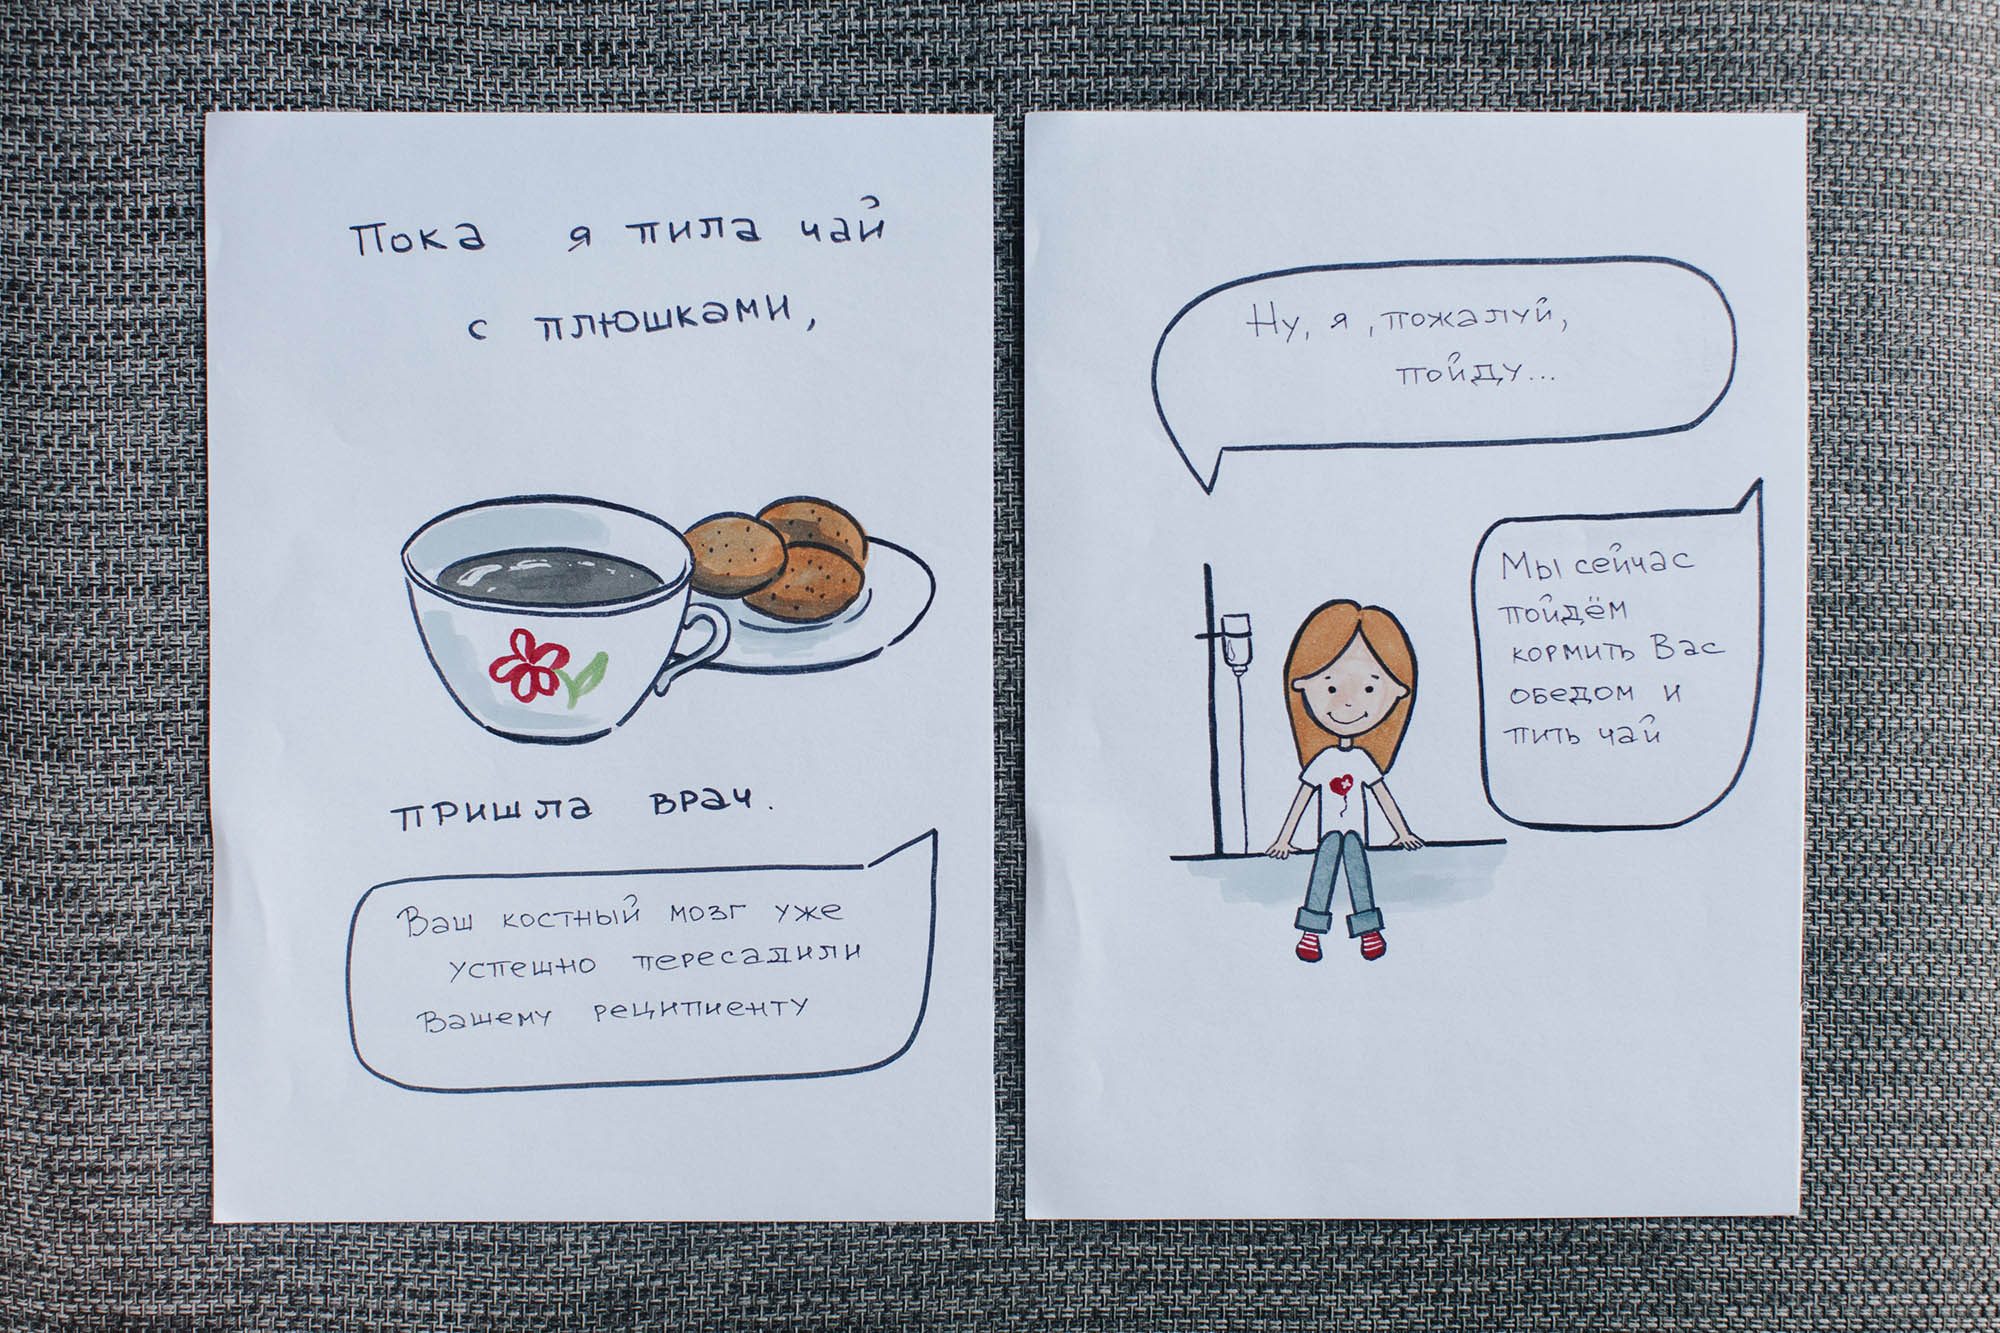 Пока я пила чай
с плюшками,
пришла врач.
Ваш костный мозг уже
успешно пересадили
Вашему реципиенту
Ну, я, пожалуй,
пойду...
Мы сейчас
пойдём
кормить Вас
обедом и
пить чай